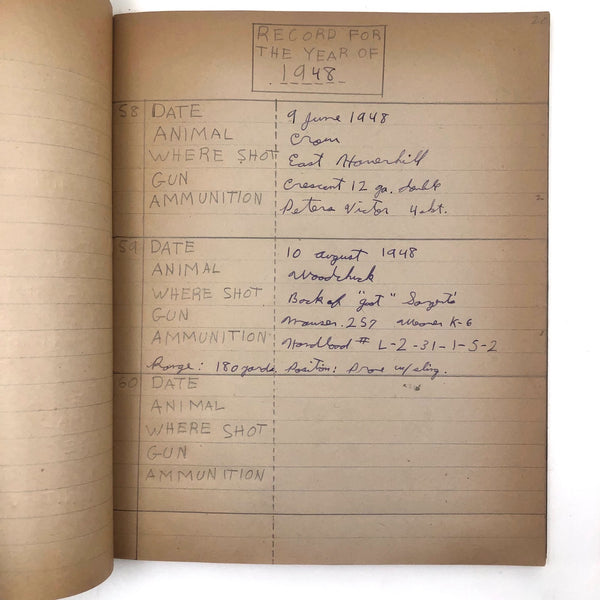 20
RECORD FOR
THE YEAR OF
1948
58 DATE 9 June 1948
ANIMAL Crow
WHERE SHOT East Haverhill
GUN Crescent 12 ga. double
AMMUNITION Peters Victor 4 shot.
59 DATE 10 august 1948
ANIMAL Woodchuck
WHERE SHOT Back of Sargents'
GUN Mauser .257 Weaver K-6
AMMUNITION Handload # L-2-31-1-5-2
Range: 180 yards. Position: Prone w/ sling.
60 DATE
ANIMAL
WHERE SHOT
GUN
AMMUNITION